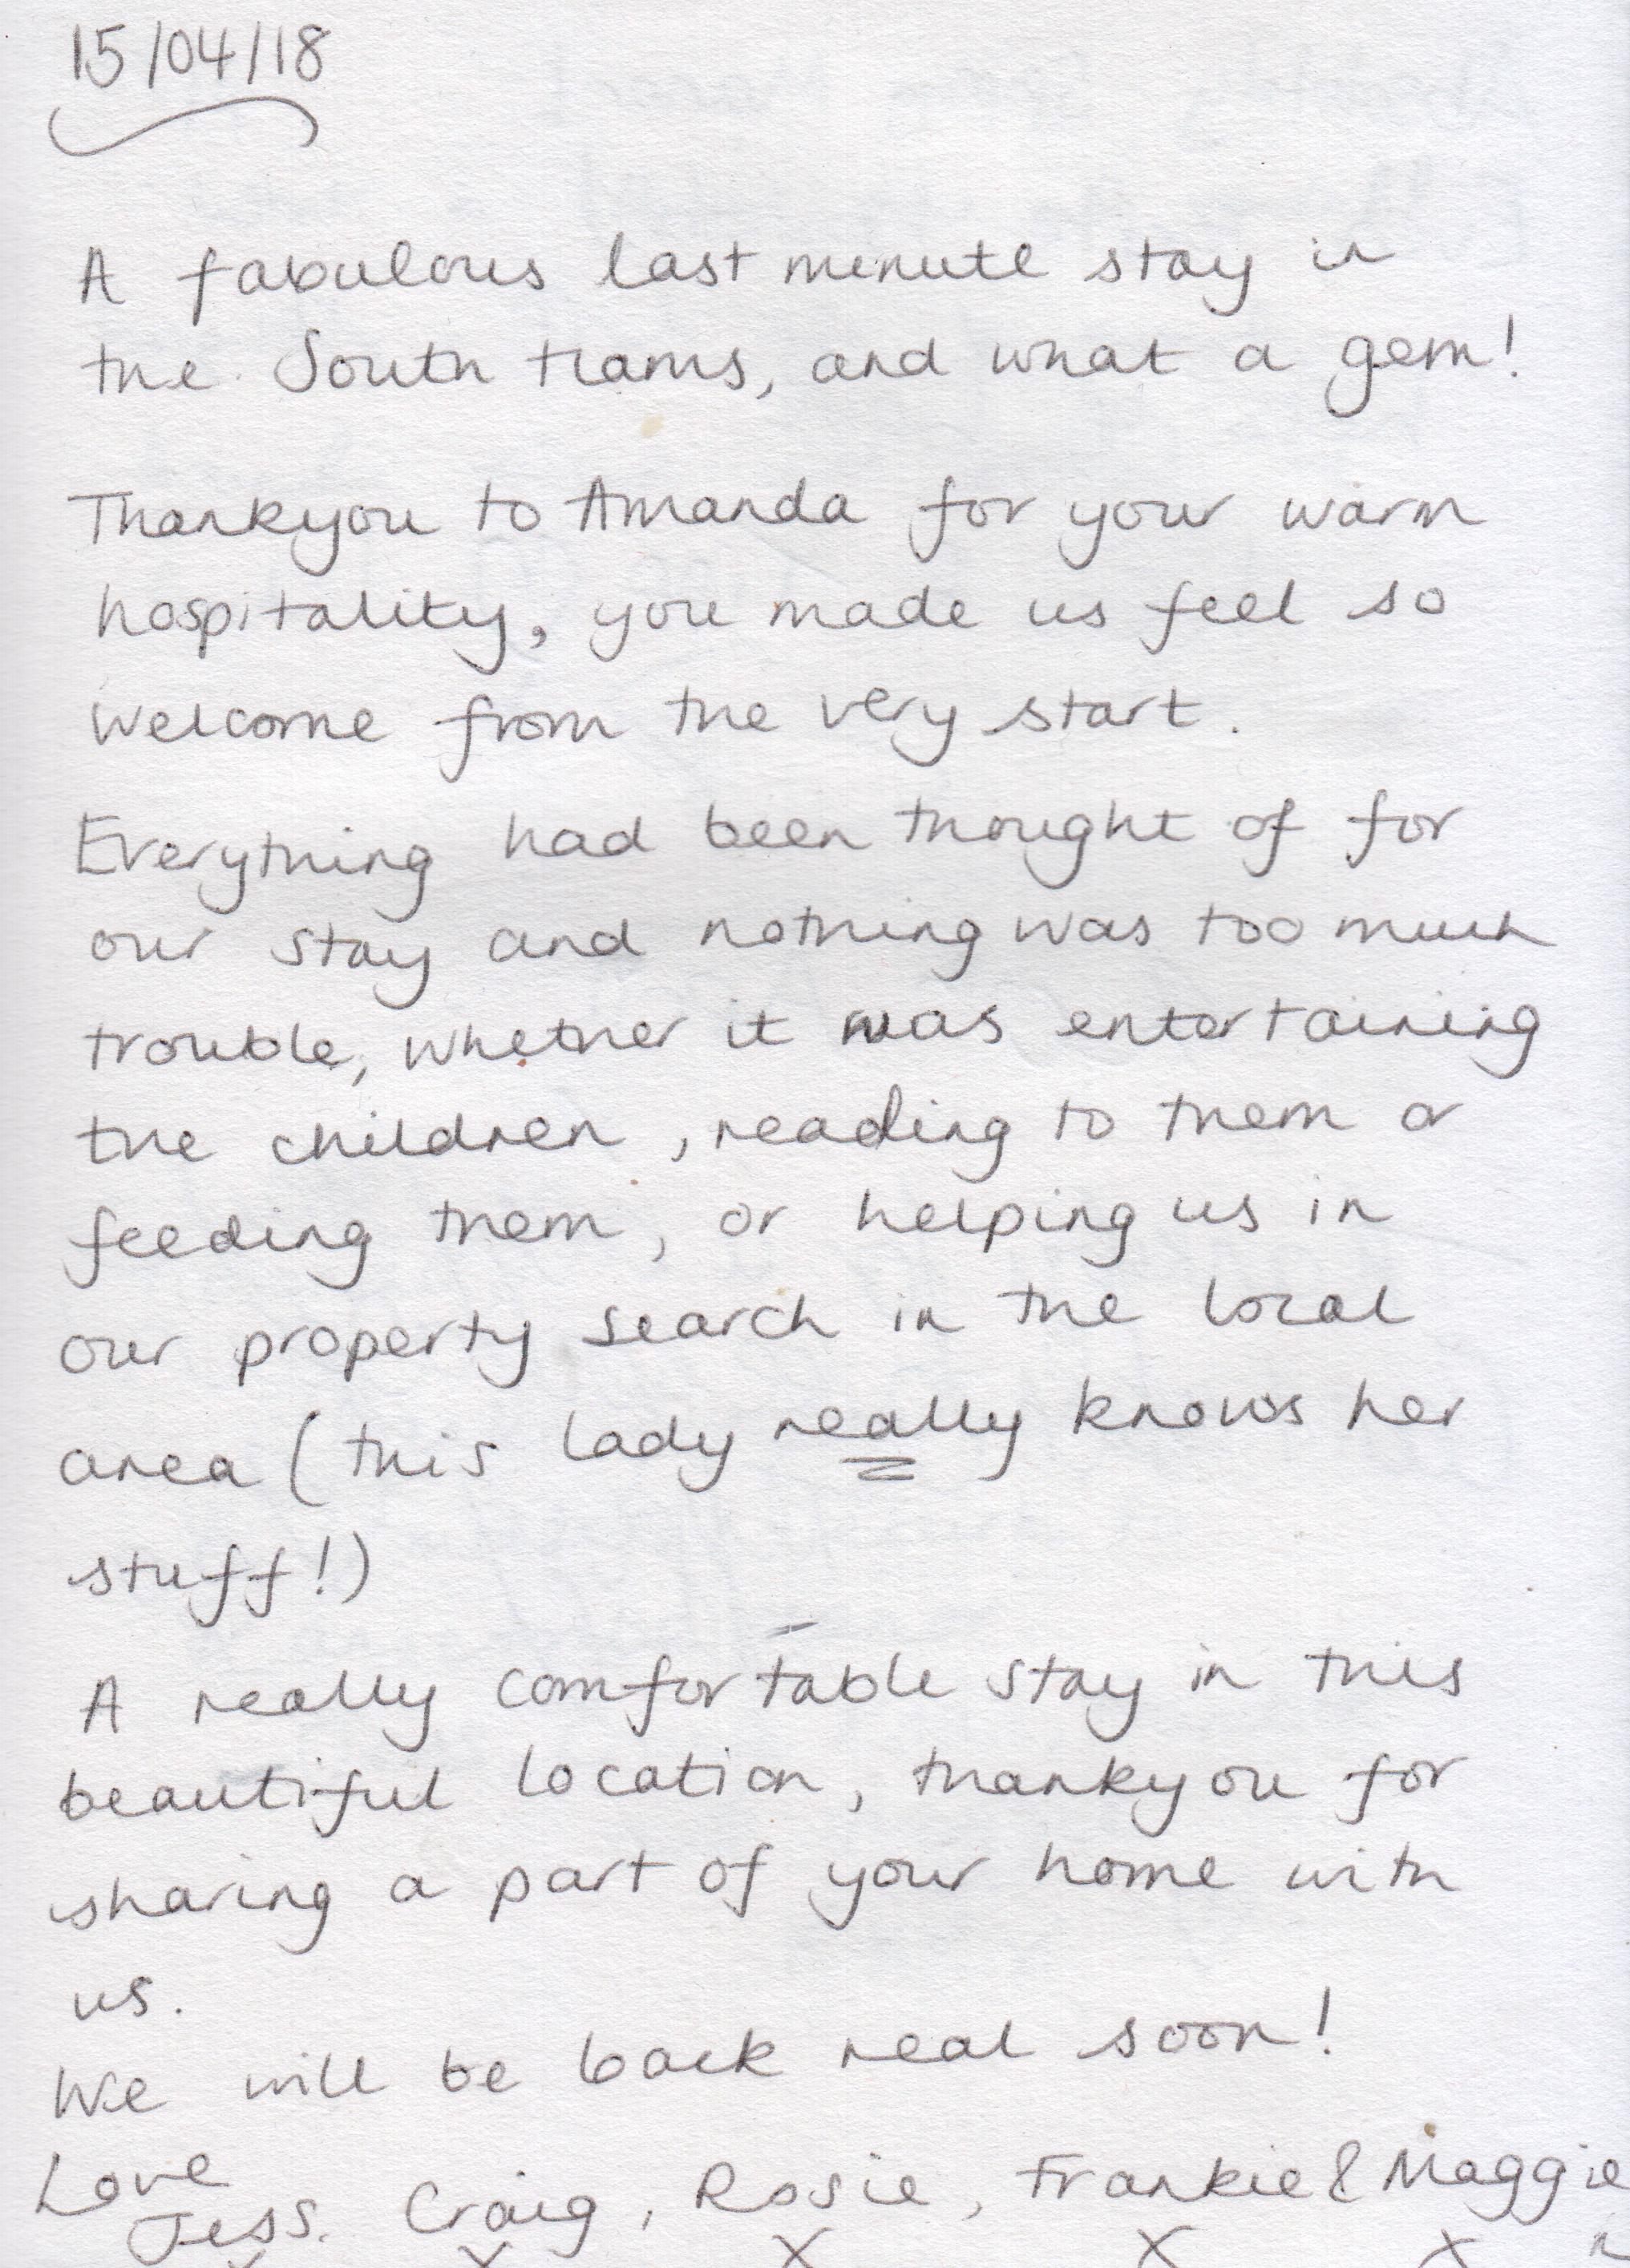 15/04/18
A fabulous last minute stay in
the South Hams, and what a gem!
Thankyou to Amanda for your warm
hospitality, you made us feel so
welcome from the very start.
Everything had been thought of for
our stay and nothing was too much
trouble, whether it was entertaining
the children, reading to them or
feeding them, or helping us in
our property search in the local
area (this lady really knows her
stuff!)
A really comfortable stay in this
beautiful location, thankyou for
sharing a part of your home with
us.
We will be back real soon!
Love
Jess. Craig, Rosie, Frankie & Maggie
x x x x x